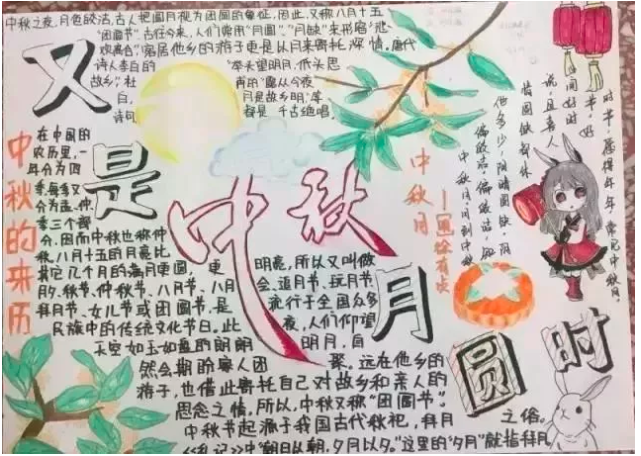 中秋之夜,月色皎洁,古人把圆月视为团圆的象征,因此,又称八月十五
"团圆节"。古往今来,人们常用"月圆"、"月缺"来形容"悲
欢离合",客居他乡的游子更是以月来寄托深情。唐代
诗人李白的"举头望明月,低头思
故乡",杜甫的"露从今夜
白,月是故乡明"等
诗句都是千古绝唱。
又是中秋月圆时
中秋的来历
在中国的
农历里,一
年分为四
季,每季又
分为孟、仲、
季三个部
分,因而中秋也称仲
秋。八月十五的月亮比
其它几个月的满月更圆,更明亮,所以又叫做
月夕、秋节、仲秋节、八月节、八月会、追月节、玩月节、
拜月节、女儿节或团圆节,是流行于全国众多
民族中的传统文化节日。此夜,人们仰望
天空如玉如盘的朗朗明月,自
然会期盼家人团聚。远在他乡的
游子,也借此寄托自己对故乡和亲人的
思念之情。所以,中秋又称"团圆节"。
中秋节起源于我国古代秋祀,拜月之俗。
礼记》中"朝日以朝,夕月以夕。"这里的"夕月"就指拜月
中秋月
中秋月。月到中秋
偏皎洁。偏皎洁,知
他多少,阴晴圆缺。阴
晴圆缺都休
说,且喜人
间好时
节。好
时节,愿得年年,常见中秋月。